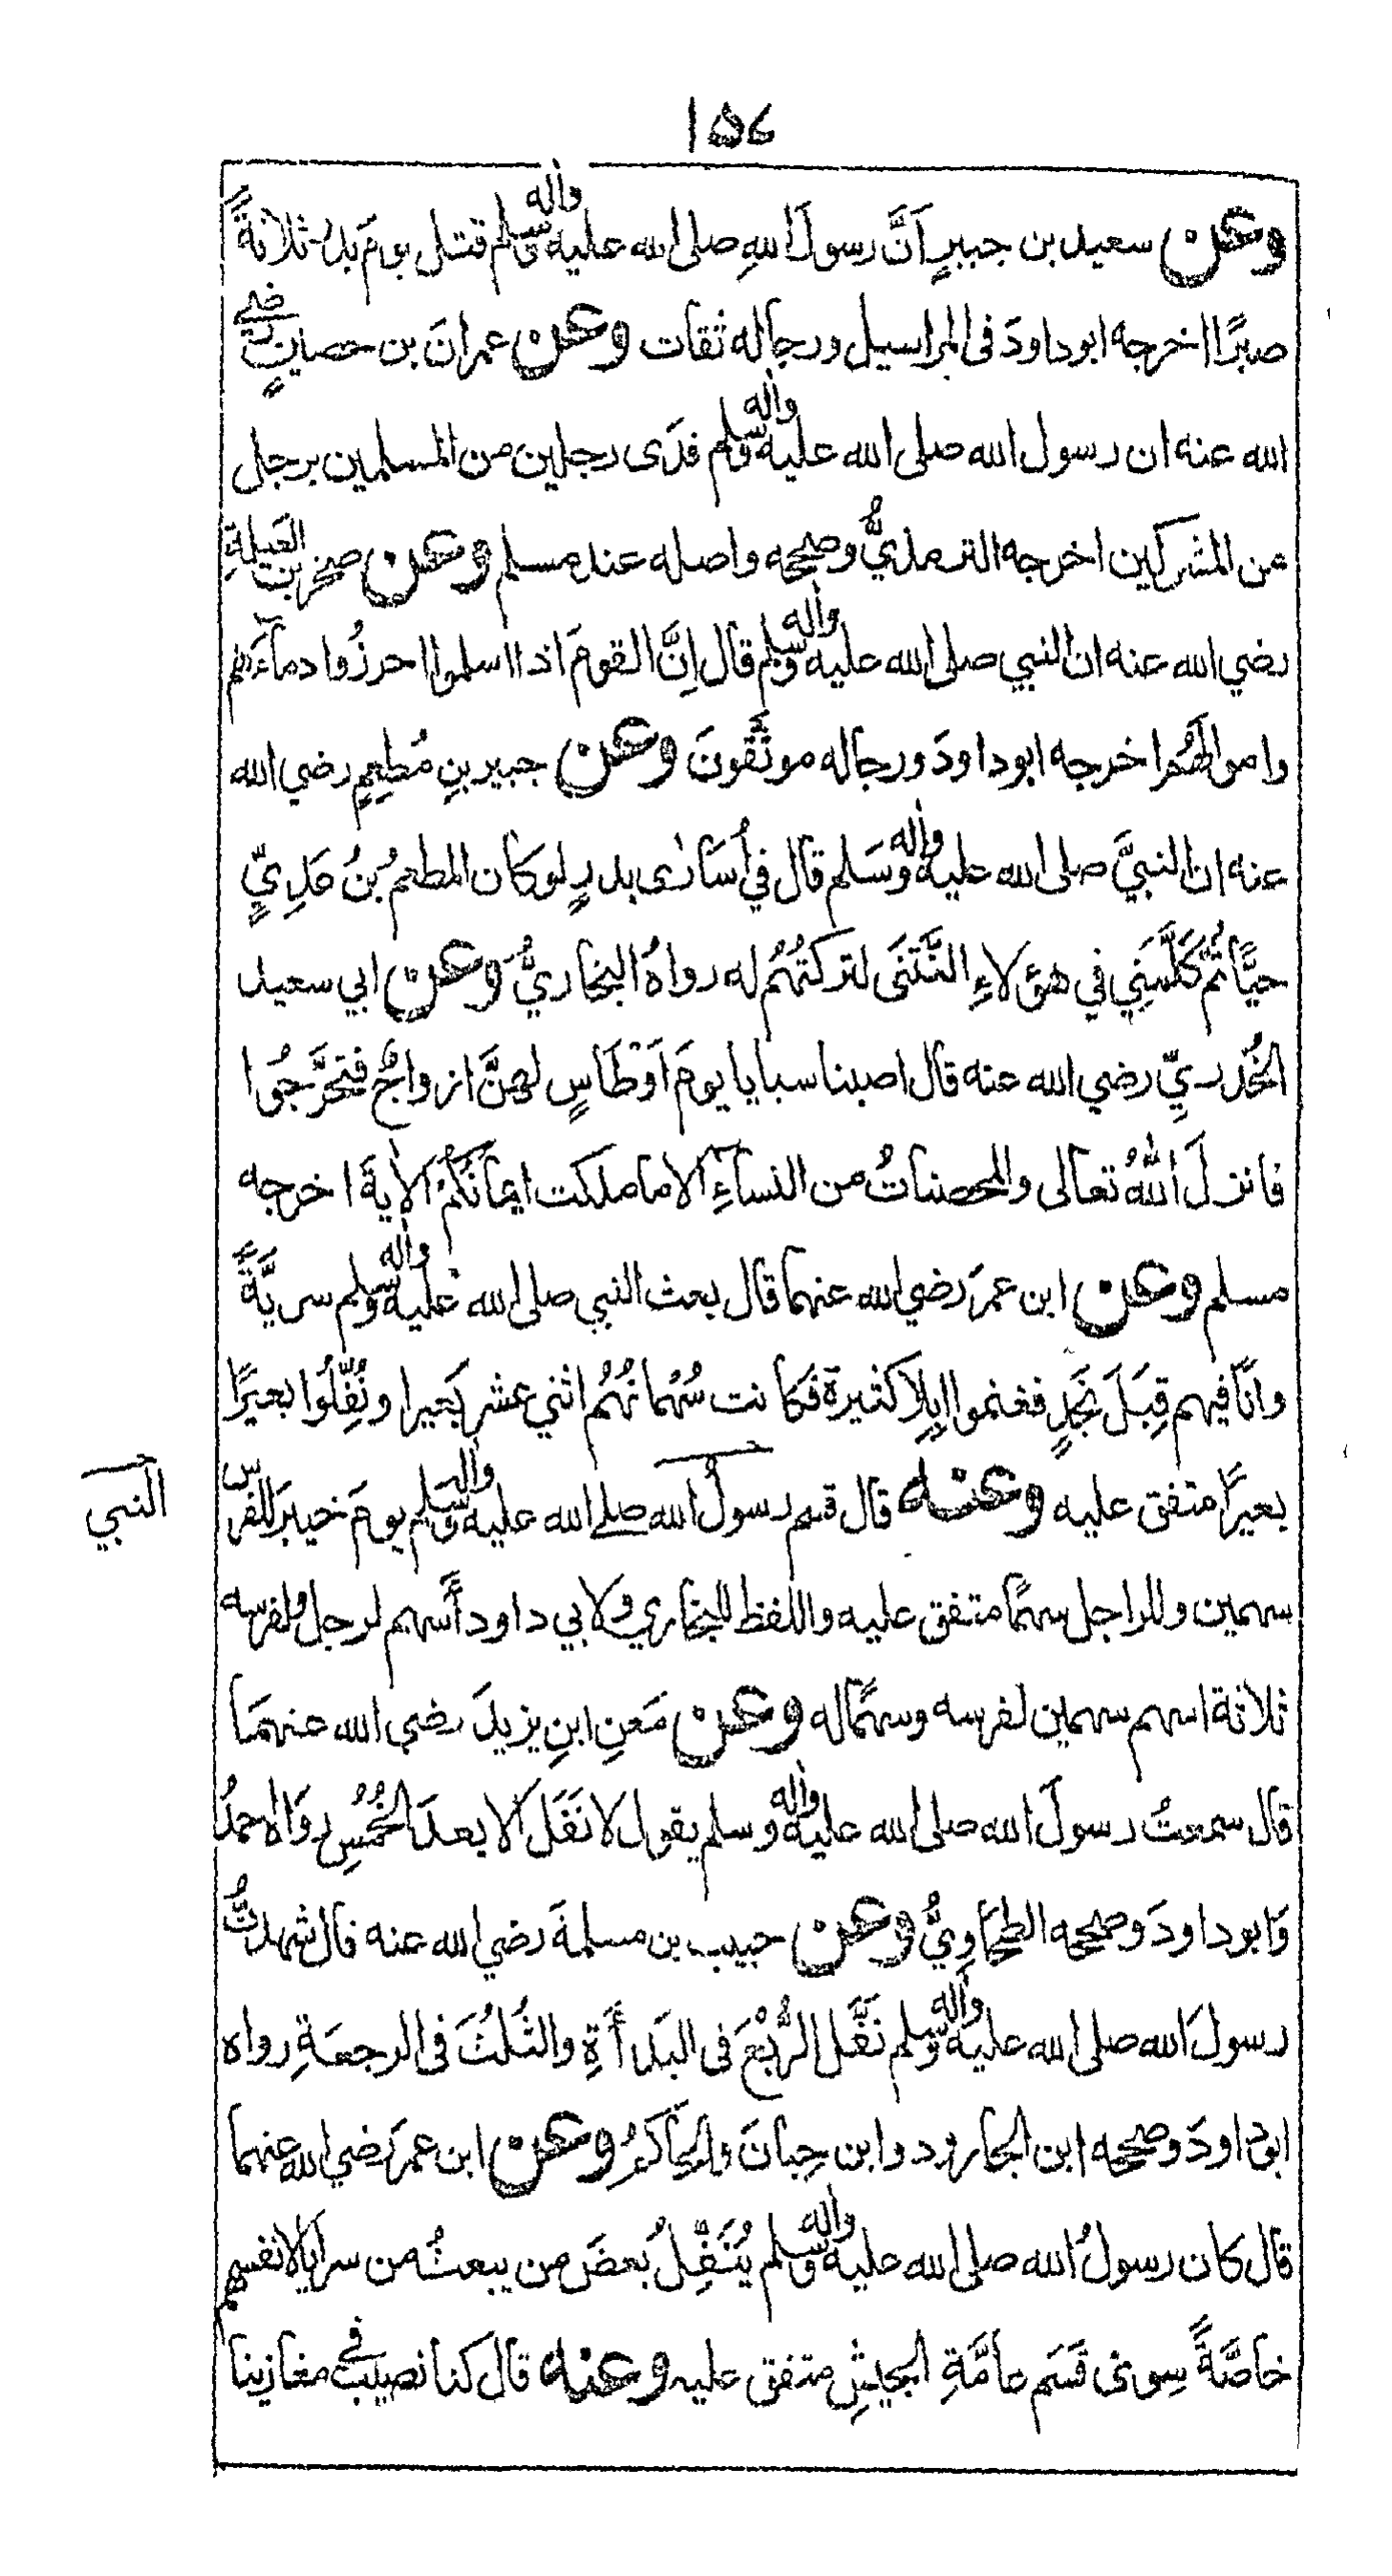 ١٥٤
وعن سعيد بن جبيرٍ اَنَّ رسولَ اللهِ صلى الله عليه واٰله وسلم قتل يومَ بدرٍ ثلاثةً
صبرًا اخرجه ابو داودَ فى المراسيل ورجاله ثقات وعن عمرانَ بن حصينٍ رضي
الله عنه ان رسول الله صلى الله عليه واٰله وسلم فدَى رجلين من المسلمين برجل
من المشركين اخرجه الترمذيُّ وصححه واصله عند مسلم وعن صخر بن العَيلةِ
رضي الله عنه ان النبي صلى الله عليه واٰله وسلم قال اِنَّ القومَ اذا اسلموا احرزُوا دماءَهم
واموالهُم اخرجه ابو داودَ ورجاله موثَّقونَ وعن جبير بنِ مُطعِمٍ رضي الله
عنه ان النبيَّ صلى الله عليه واٰله وسَلم قال في اُسَارٰى بدرٍ لو كان المطعم بنُ عَدِيٍّ
حيًّا ثم كَلَّمَنِي في هؤلاءِ النَّتَنَى لتركتُهُم له رواهُ البخاريُّ وعن ابي سعيد
الخُدريِّ رضي الله عنه قال اصبنا سبايا يومَ اَوْطَاسٍ لهنَّ ازواجٌ فتحرَّجُوا
فانزلَ اللهُ تعالى والمحصناتُ من النساءِ الا ما ملكت ايمانُكُمْ الاٰيةَ اخرجه
مسلم وعن ابن عمرَ رضي الله عنهما قال بعث النبي صلى الله عليه واٰله وسلم سريَّةً
وانَا فيهم قِبَلَ نَجَدٍ فغنموا اِبِلًا كثيرة فكانت سُهْمَانُهُم اثني عشر بَعيرا ونُفِّلُوا بعيرًا
بعيرًا متفق عليه وعنه قال قسم رسولُ الله صلى الله عليه واٰله وسلم يومَ خيبرَ للفرس
النبي
سهمين وللراجل سهمًا متفق عليه واللفظ للبخاري ولابي داود أَسهم لرجل ولفرسه
ثلاثة اسهم سهمين لفرسه وسهمًا له وعن مَعنِ ابنِ يزيدَ رضي الله عنهمَا
قال سمعتُ رسولَ الله صلى الله عليه واٰله وسلم يقول لا نَفَلَ الا بعدَ الخُمُسِ رواه احمدُ
وَابو داودَ وصححه الطحاوِيُّ وعن حبيب بن مسلمةَ رضي الله عنه قال شهدتُّ
رسولَ الله صلى الله عليه واٰله وسلم نَفَّلَ الرُّبْعَ فى البَدأَةِ والثُلُثَ فى الرجعَةِ رواه
ابو داودَ وصححه ابن الجارود وابن حِبانَ والحاكمُ وعن ابن عمرَ رضي الله عنهما
قال كان رسولُ الله صلى الله عليه واٰله وسلم يُنَفِّلُ بعضَ من يبعثُ من سرايا لانفسهم
خاصَّةً سِوى قَسَم عامَّةِ الجيشِ متفق عليه وعنه قال كنا نصيب في مغازينا